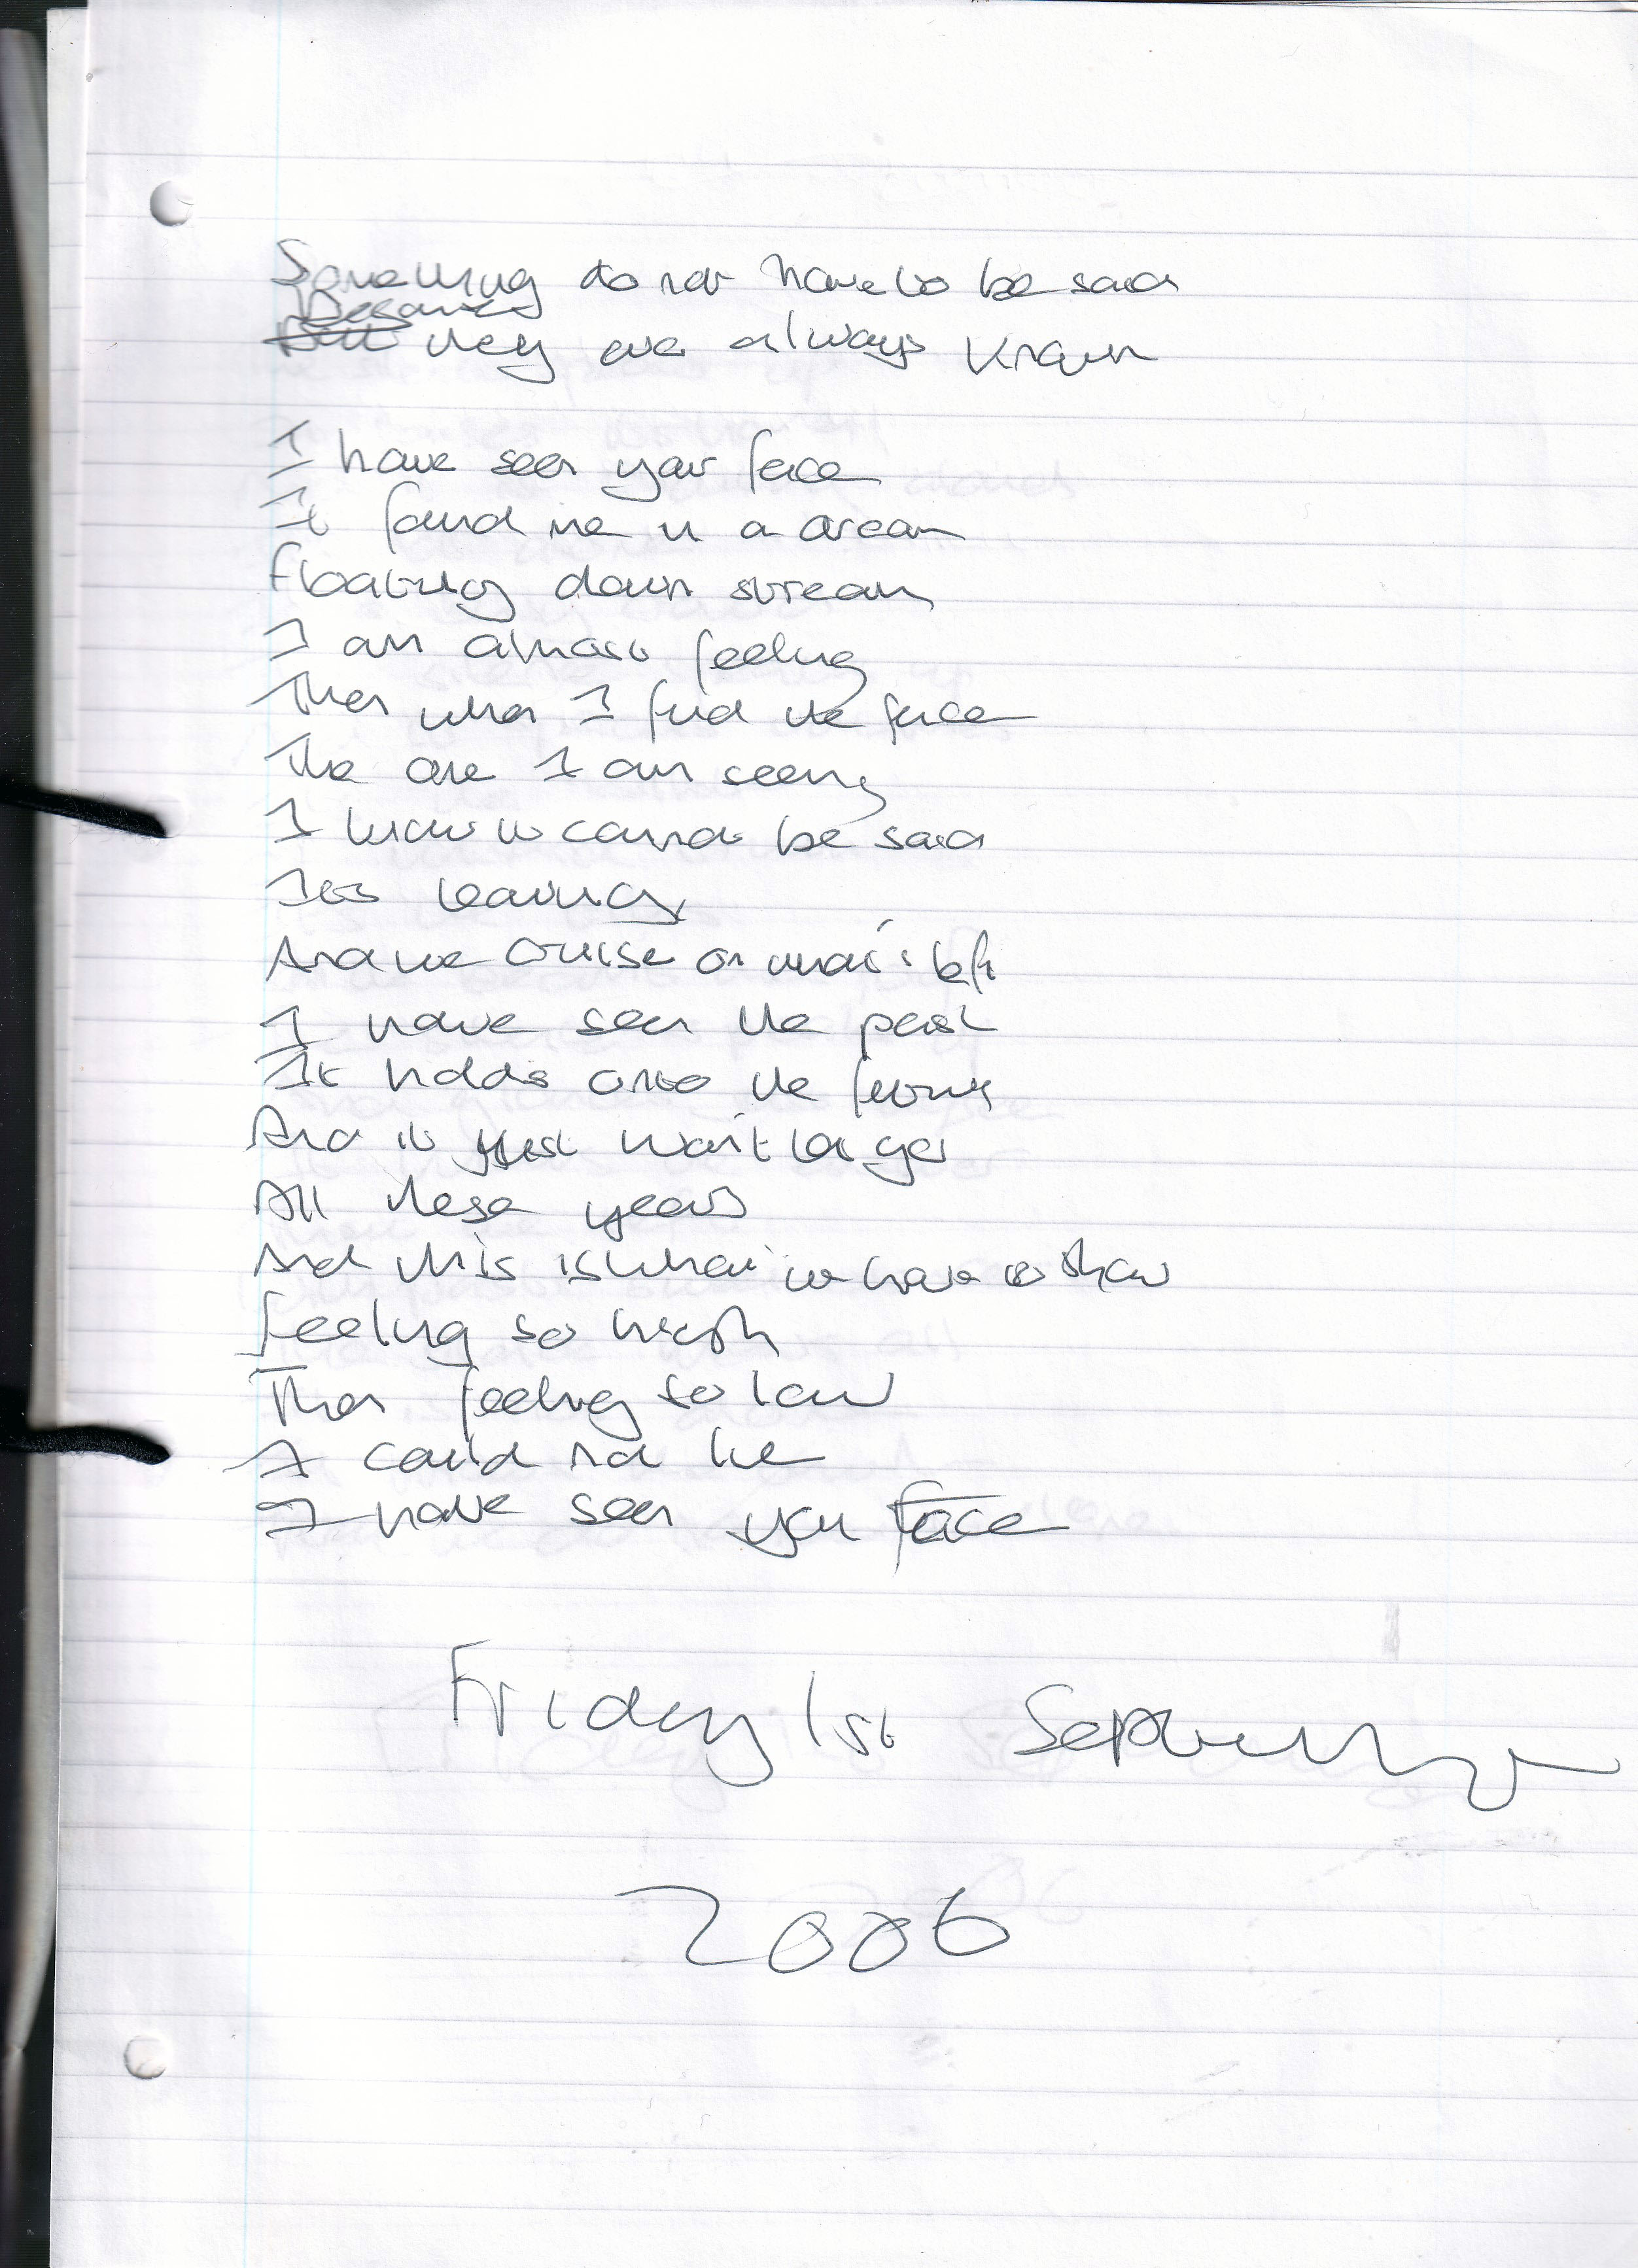 Something do not have to be said
Because
But they are always known
I have seen your face
It found me in a dream
Floating down stream
I am almost feeling
Then when I find the face
The one I am seeing
I know it cannot be said
Its leaving
And we cruise on what's left
I have seen the past
It holds onto the
And it just wait longer
All these years
And this is what we have to show
Feeling so high
Then feeling so low
I could not lie
I have seen your face
Friday 1st September
2006